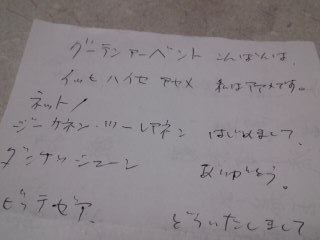 グーテンアーベント こんばんは。
イッヒ ハイセ アヤメ 私はアヤメです。
ネット!
ジーケネン・ツーレアネン はじめまして。
ダンケシェーン ありがとう。
ビッテゼア. どういたしまして